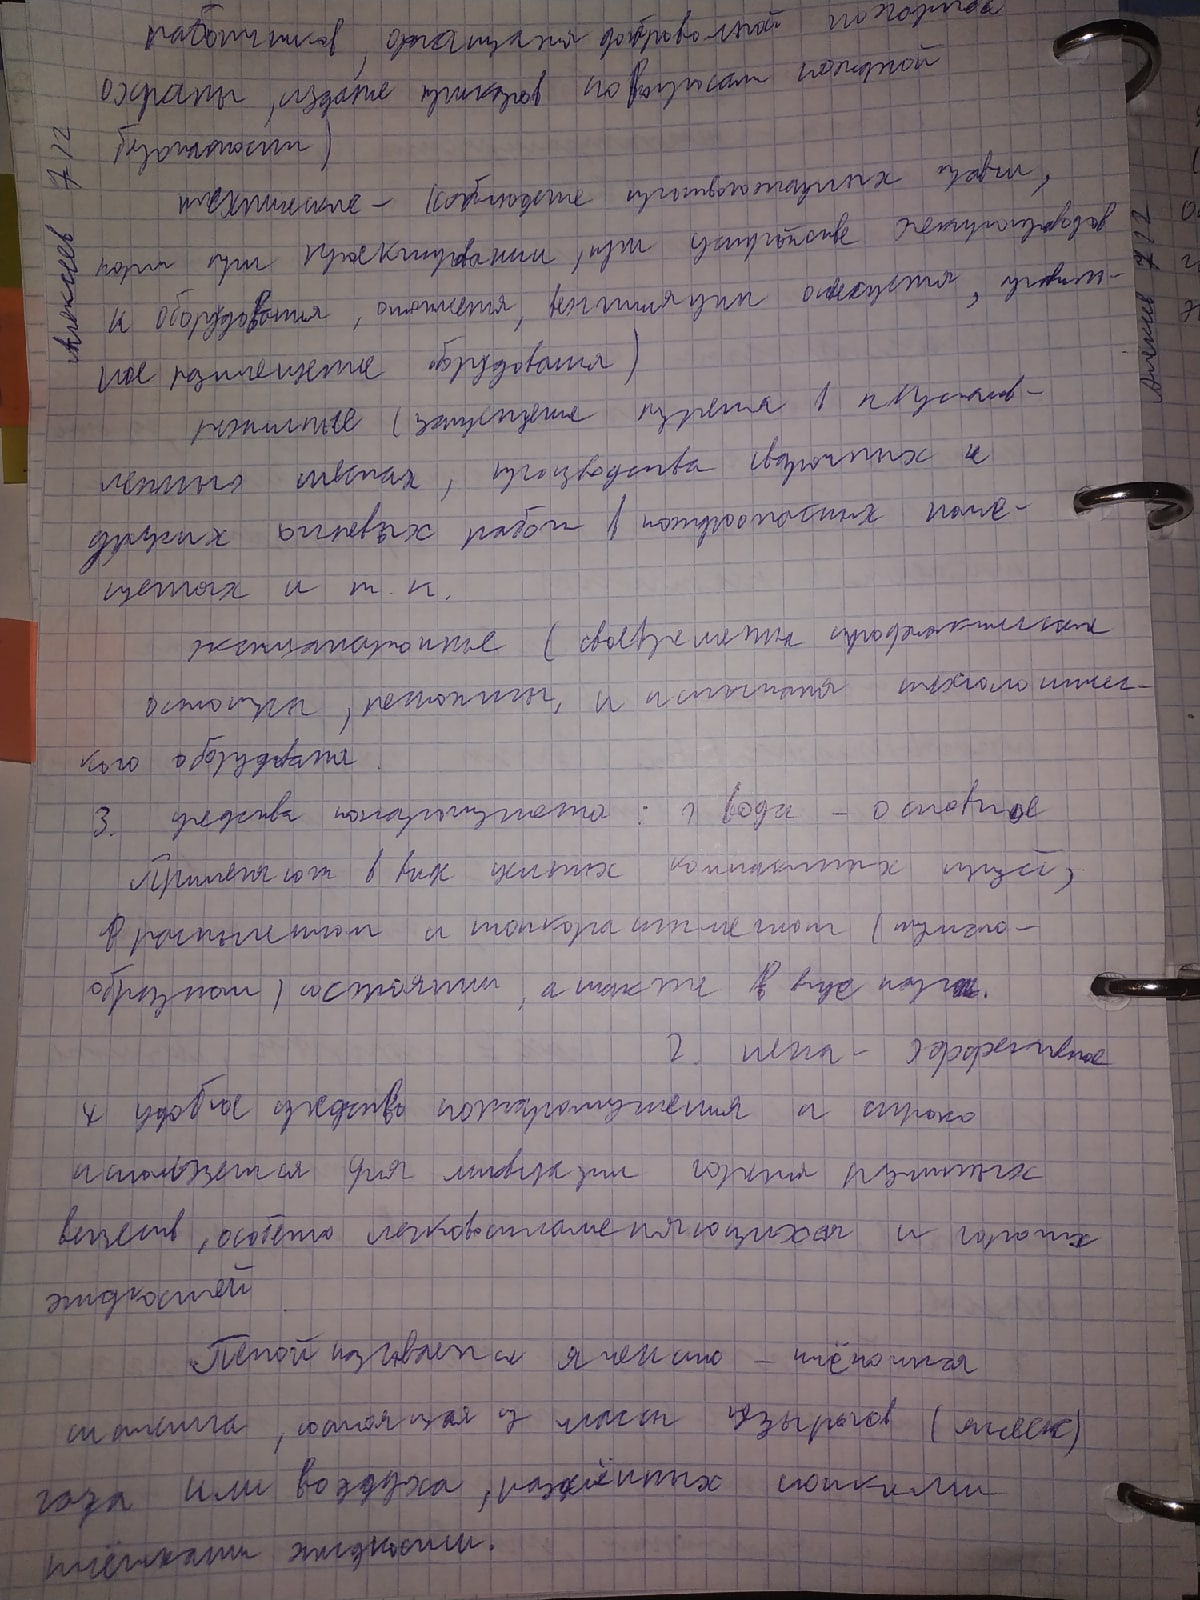 работников, организация добровольной пожарной
охраны, издание приказов по вопросам пожарной
безопасности)
технические – (соблюдение противопожарных правил,
норм при проектировании, при устройстве
и оборудования, отопления, вентиляции освещения, правиль-
ное размещение оборудования)
режимные (запрещение курения в неустанов-
ленных местах, производства сварочных и
других огневых работ в пожароопасных поме-
щениях и т. п.
эксплуатационные (своевременные профилактические
осмотры, ремонты, и испытания технологичес-
кого оборудования.
3. средства пожаротушения: 1 вода – основное
Применяют в виде компактных струй,
в распыленном и тонкораспыленном (тумано-
образном) состоянии, а также в виде пара.
2. пена – эффективное
и удобное средство пожаротушения и широко
используется для ликвидации горения различных
веществ, особенно легковоспламеняющихся и горючих
жидкостей
Пеной называется ячеисто – плёночная
система, состоящая из массы пузырьков (ячеек)
газа или воздуха, разделённых тонкими
плёнками жидкости.
Алексеев 7/12
Алексеев 7/12